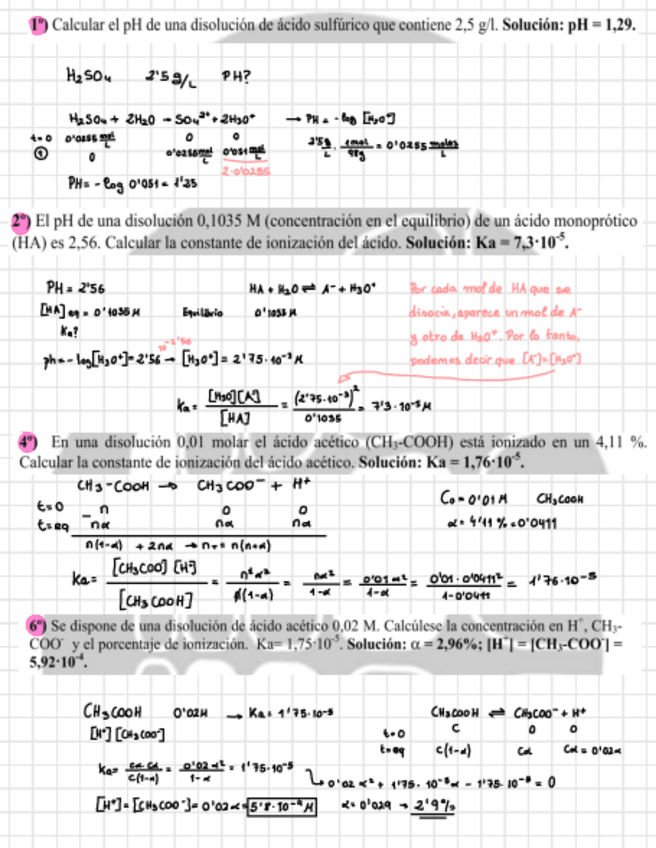 1º) Calcular el pH de una disolución de ácido sulfúrico que contiene 2,5 g/l. Solución: pH = 1,29.
H₂SO₄ 2'5 g/L PH?
H₂SO₄ + 2H₂O → SO₄²⁻ + 2H₃O⁺ → PH = -log [H₃O⁺]
t=0 0'0255 mol/L 0 0 2'5g/L · 1mol/98g = 0'0255 moles/L
① 0 0'0255 mol/L 0'051 mol/L
2·0'0255
PH = -log 0'051 = 1'25
2º) El pH de una disolución 0,1035 M (concentración en el equilibrio) de un ácido monoprótico
(HA) es 2,56. Calcular la constante de ionización del ácido. Solución: Ka = 7,3·10⁻⁵.
PH = 2'56 HA + H₂O ⇌ A⁻ + H₃O⁺ Por cada mol de HA que se
[HA] eq = 0'1035 M Equilibrio 0'1035 M disocia, aparece un mol de A⁻
Ka? y otro de H₃O⁺. Por lo tanto,
10^-2'56
ph = -log[H₃O⁺] = 2'56 → [H₃O⁺] = 2'75·10⁻³ M podemos decir que [A⁻]=[H₃O⁺]
Ka = [H₃O][A⁻]/[HA] = (2'75·10⁻³)²/0'1035 = 7'3·10⁻⁵ M
4º) En una disolución 0,01 molar el ácido acético (CH₃-COOH) está ionizado en un 4,11 %.
Calcular la constante de ionización del ácido acético. Solución: Ka = 1,76·10⁻⁵.
CH₃-COOH → CH₃COO⁻ + H⁺ C₀ = 0'01 M CH₃COOH
t=0 n 0 0
t=eq -nα nα nα α = 4'11 % = 0'0411
n(1-α) + 2nα → n_T = n(1+α)
Ka = [CH₃COO][H⁺]/[CH₃COOH] = n²α²/n(1-α) = nα²/1-α = 0'01α²/1-α = 0'01·0'0411²/1-0'0411 = 1'76·10⁻⁵
6º) Se dispone de una disolución de ácido acético 0,02 M. Calcúlese la concentración en H⁺, CH₃-
COO⁻ y el porcentaje de ionización. Ka= 1,75·10⁻⁵. Solución: α = 2,96%; [H⁺] = [CH₃-COO⁻] =
5,92·10⁻⁴.
CH₃COOH 0'02M → Ka = 1'75·10⁻⁵ CH₃COOH ⇌ CH₃COO⁻ + H⁺
[H⁺] [CH₃COO⁻] t=0 C 0 0
t=eq C(1-α) Cα Cα = 0'02α
Ka = Cα·Cα/C(1-α) = 0'02α²/1-α = 1'75·10⁻⁵
0'02α² + 1'75·10⁻⁵α - 1'75·10⁻⁵ = 0
[H⁺] = [CH₃COO⁻] = 0'02α = 5'8·10⁻⁴ M α = 0'029 → 2'9%